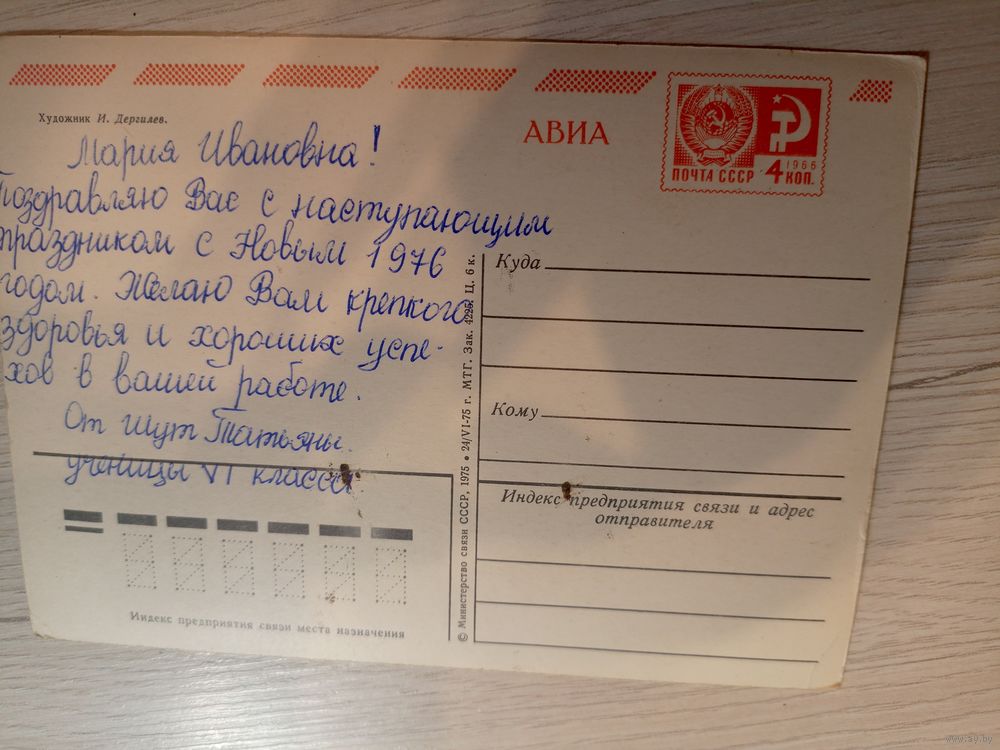 Художник И. Дергилев.
АВИА
1966
ПОЧТА СССР 4 КОП.
Мария Ивановна!
Поздравляю Вас с наступающим
праздником с Новым 1976
годом. Желаю Вам крепкого
здоровья и хороших успе-
хов в вашей работе.
От Шут Татьяны.
ученицы VI класса
Индекс предприятия связи места назначения
© Министерство связи СССР, 1975 • 24/VI-75 г. МТГ. Зак. 4225. Ц. 6 к.
Куда
Кому
Индекс предприятия связи и адрес
отправителя
www.ay.by